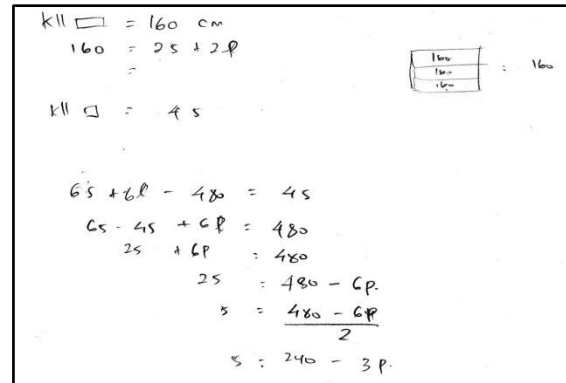 kll ▭ = 160 cm
160 = 2s + 2l
=
160
160
160
: 160
kll □ = 4s
6s + 6l - 480 = 4s
6s - 4s + 6l = 480
2s + 6p : 480
2s : 480 - 6p.
s = 480 - 6p
2
s : 240 - 3p.